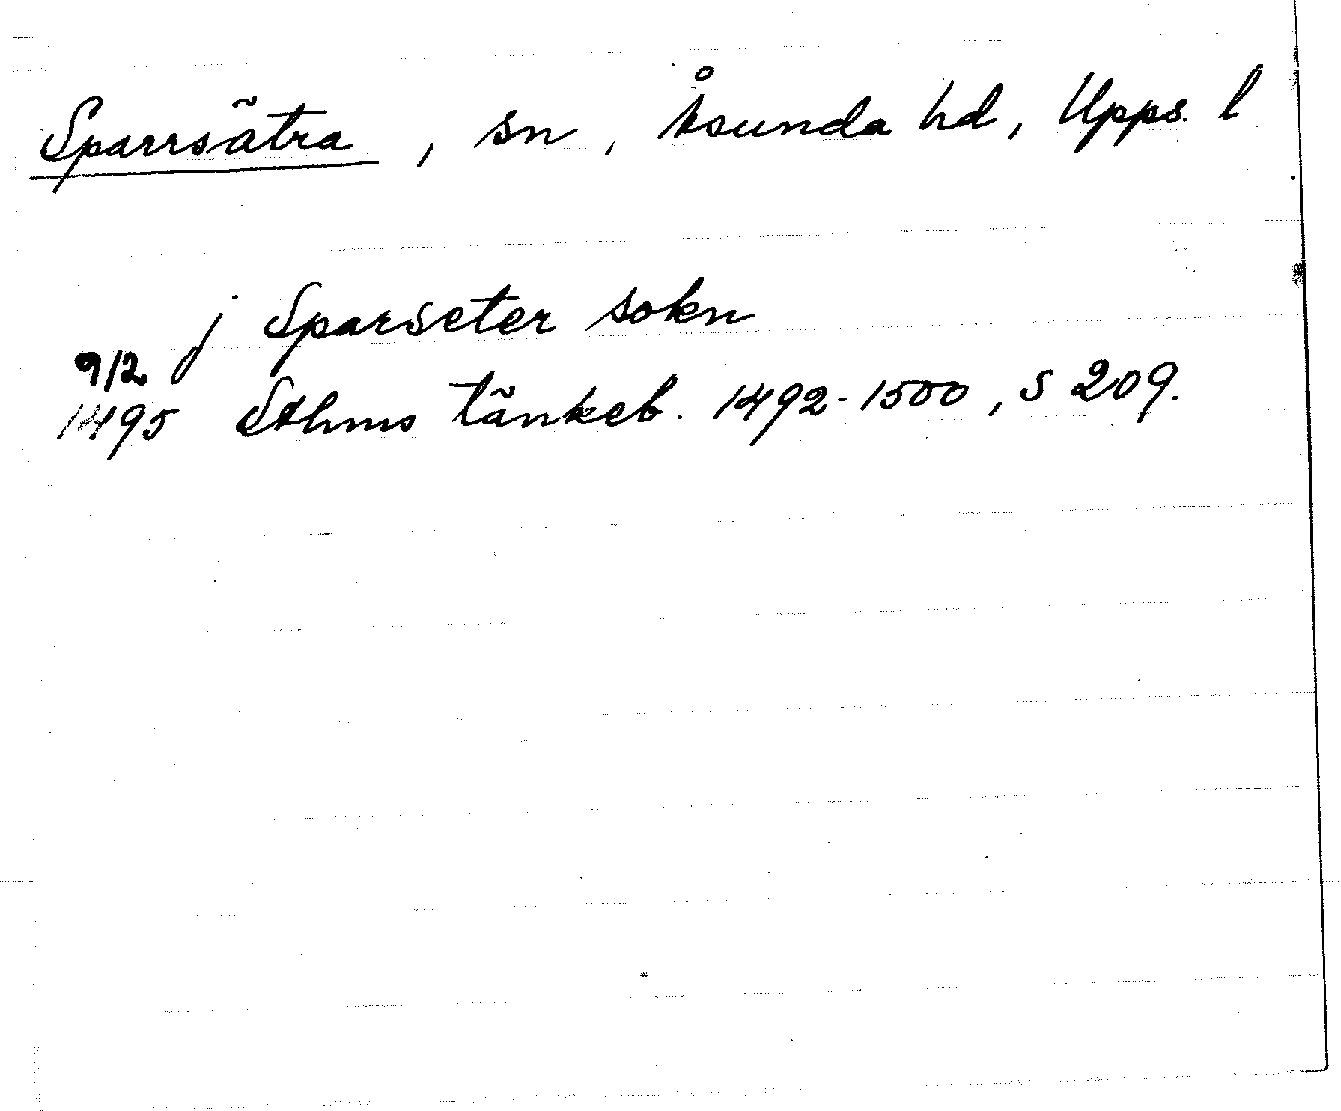 Sparrsätra, sn, Åsunda hd, Upps. l
j Sparseter sokn
9/2
1495 Sthms tänkeb. 1492-1500, s 209.